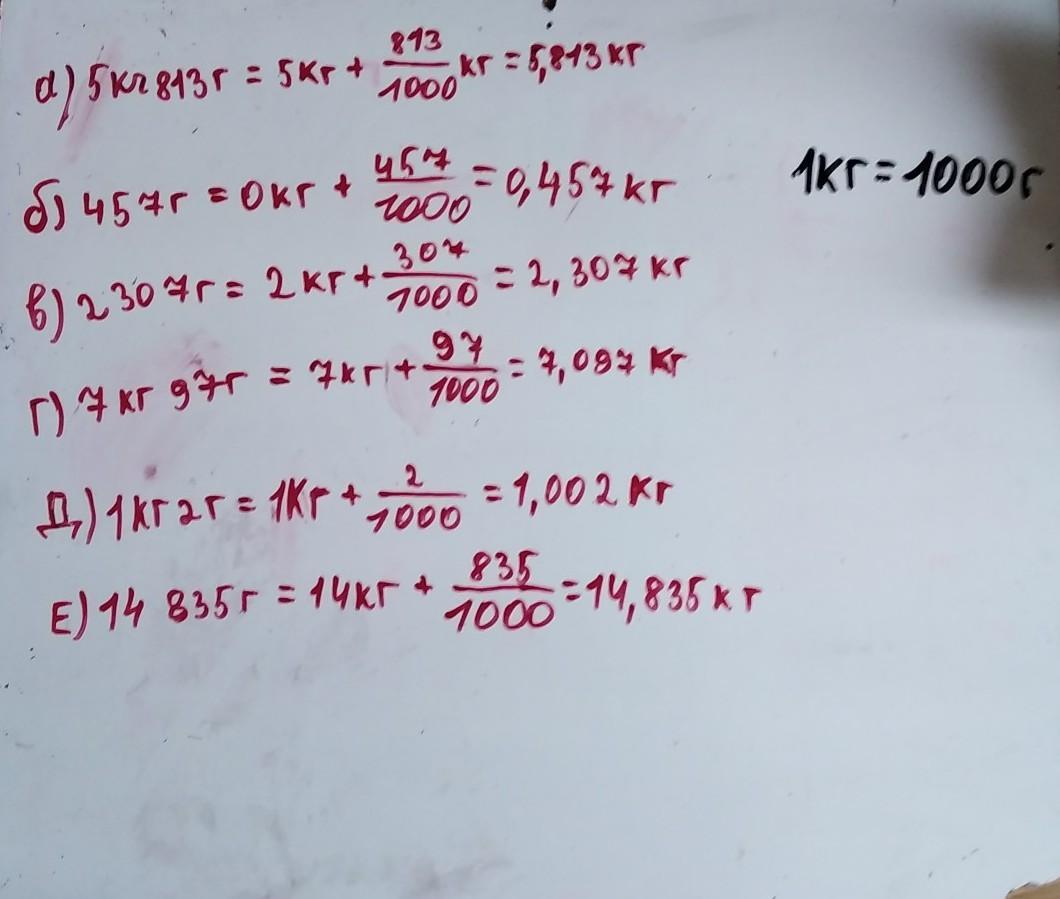 а) 5кг 813г = 5кг + 813/1000 кг = 5,813 кг
1кг = 1000г
б) 457г = 0кг + 457/1000 = 0,457 кг
в) 2307г = 2кг + 307/1000 = 2,307 кг
г) 7кг 97г = 7кг + 97/1000 = 7,097 кг
Д) 1кг 2г = 1кг + 2/1000 = 1,002 кг
Е) 14 835г = 14кг + 835/1000 = 14,835 кг